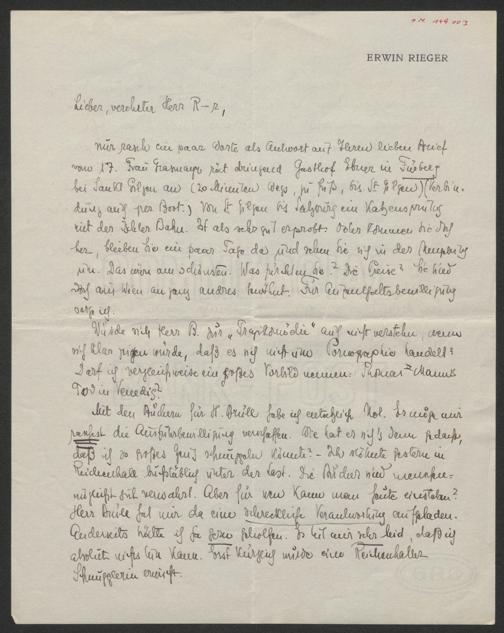 1 M 144 003
ERWIN RIEGER
Lieber, verehrter Herr R-r,
nur rasch ein paar Worte als Antwort auf Ihren lieben Brief
vom 17. Frau rät dringend Gasthof Ebner in Fürberg
bei Sankt Gilgen an (20 Minuten Wegs, zu Fuß, bis St Gilgen) (Verbin-
dung auch per Boot.) Von St Gilgen bis Salzburg ein Katzensprung
mit der Ischler Bahn. Ist als sehr gut erprobt. Oder kommen Sie doch
her, bleiben Sie ein paar Tage da und sehen Sie sich in der Umgebung
um. Das wäre am schönsten. Was fürchten Sie? Die Preise? Sie sind
doch aus Wien an ganz anderes gewöhnt. Für Aufenthaltsbewilligung
sorge ich.
Würde sich Herr B. zur „Tragikomödie" auch nicht verstehen, wenn
sich klar zeigen würde, daß es sich nicht um Pornographie handelt?
Darf ich vergleichsweise ein großes Vorbild nennen: Thomas Manns
Tod in Venedig?
Mit den Büchern für H. Brüll habe ich entsetzlich Not. Es muß mir
zunächst die Ausfuhrbewilligung verschaffen. Wie hat er sich's denn gedacht,
daß ich so großes Zeug schmuggeln könnte? - Ich stöhnte gestern in
Reichenhall buchstäblich unter der Last. Die Bücher sind
verwahrt. Aber für wen kann man heute einstehen?
Herr Brüll hat mir da eine schreckliche Verantwortung aufgeladen.
Anderseits hätte ich so gern geholfen. Es tut mir sehr leid, daß ich
absolut nichts tun kann. Erst kürzlich wurde eine Reichenhaller
Schmugglerin erwischt.